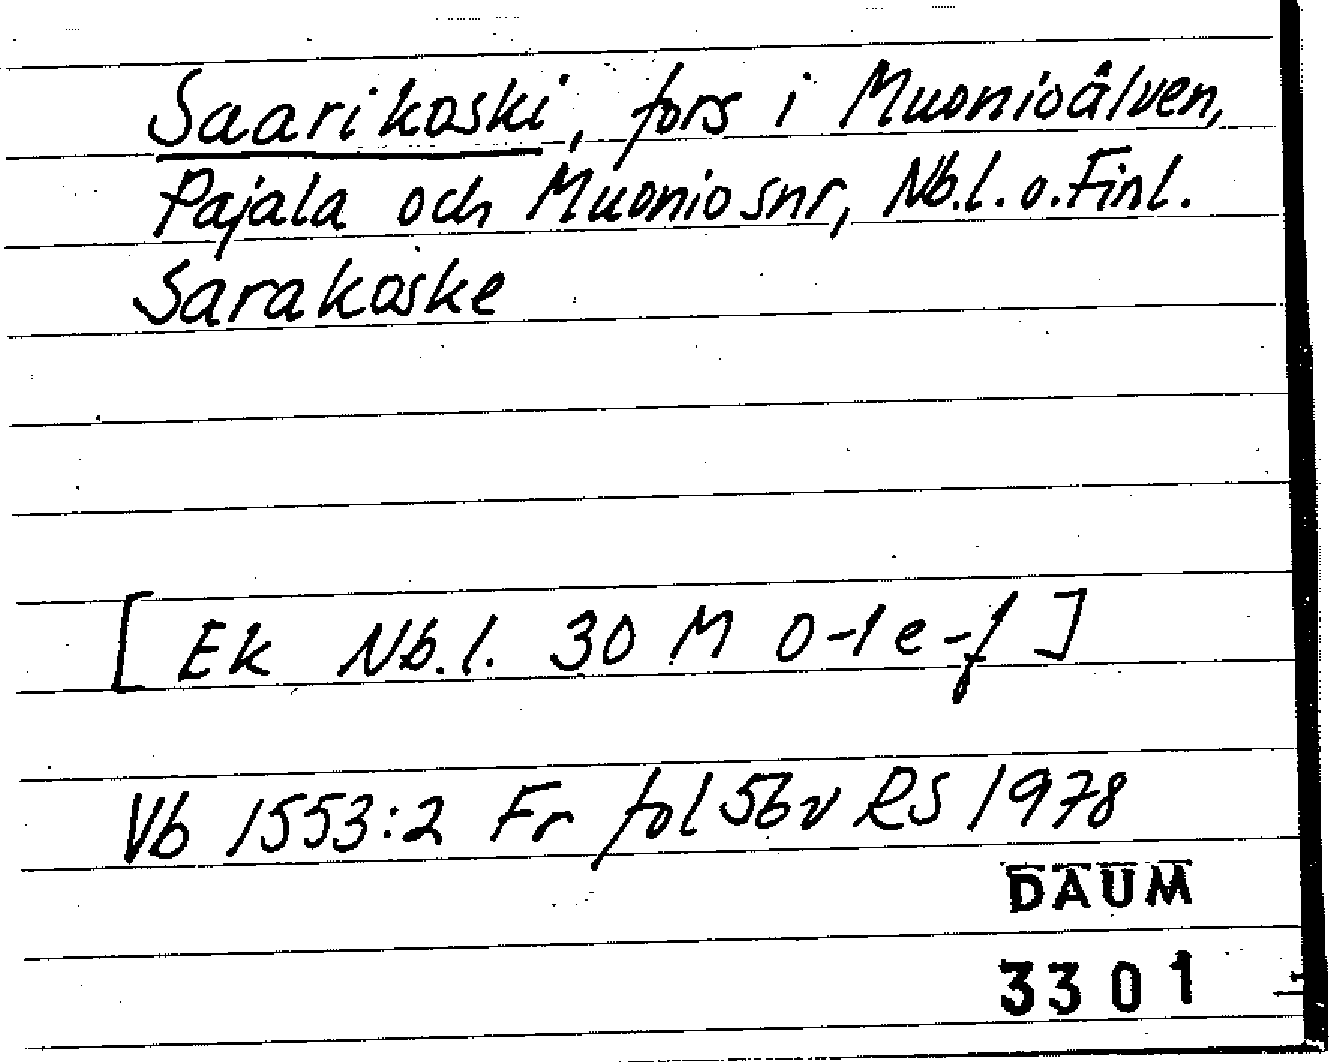 Saarikoski, fors i Muonioälven,
Pajala och Muonio snr, Nb.l. o. Finl.
Sarakoske
[Ek Nb.l. 30 M 0-1 e-f]
Vb 1553:2 Fr fol 56v RS 1978
DAUM
3301